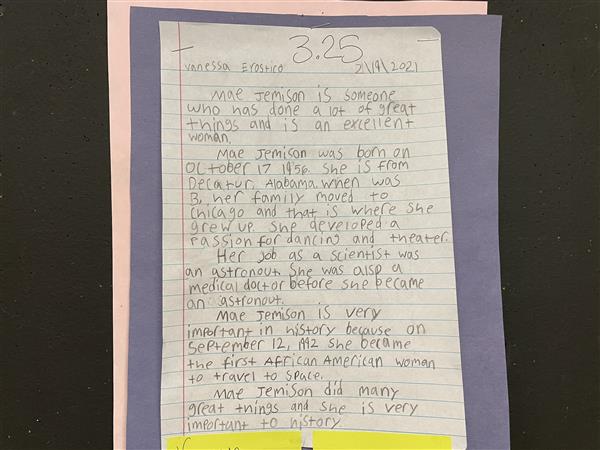 3.25
Vanessa Erostico 2/19/2021
Mae Jemison is someone
who has done a lot of great
things and is an excellent
woman.
Mae Jemison was born on
October 17 1956. She is from
Decatur, Alabama. when was
3, her family moved to
chicago and that is where she
grew up. She developed a
Passion for dancing and theater.
Her job as a scientist was
an astronout. She was also a
medical doctor before she became
an astronout.
Mae Jemison is very
important in history because on
September 12, 1992 she became
the first African American woman
to travel to space.
Mae Jemison did many
great things and she is very
important to history